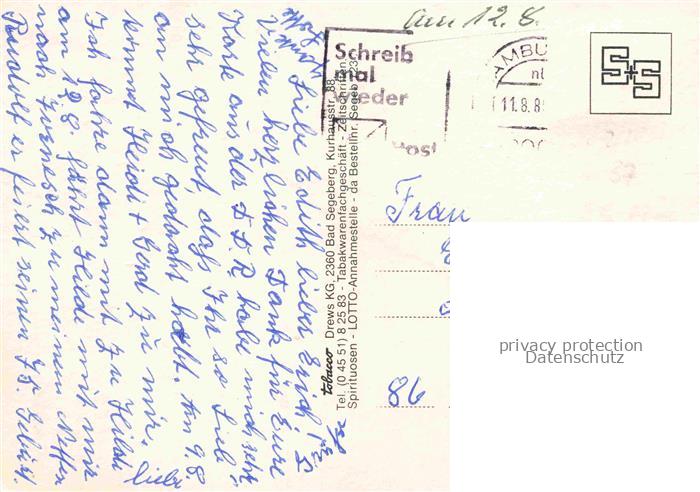 Am 12.8.
Schreib
mal
wieder
Post
MBU
11.8.8
S+S
Liebe Edith lieber Erich!
Vielen herzlichen Dank für Eure
Karte aus der DDR habe mich sehr
sehr gefreut, daß Ihr so lieb
an mich gedacht habt. Am 9.8.
kommt Heidi + Gerd zu mir.
Ich fahre dann mit zu Heidi
am 12.8. fährt Hilde mit mir
nach zu meinem Neffen
Rudolf er feiert seinen 75. Geburt.
tobacco Drews KG, 2360 Bad Segeberg, Kurhausstr. 88
Tel. (0 45 51) 8 25 83 - Tabakwarenfachgeschäft - Zeitschriften
Spirituosen - LOTTO-Annahmestelle - da Bestellnr. Segeb 123
Frau
86
privacy protection
Datenschutz